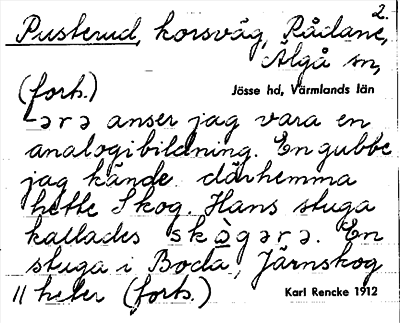 2.
Pusterud, korsväg, Rådane,
Älgå sn,
(forts.) Jösse hd, Värmlands län
-ərə anser jag vara en
analogibildning. En gubbe
jag kände därhemma
hette Skog. Hans stuga
kallades skògərə. En
stuga i Boda, Järnskog
// heter (forts.) Karl Rencke 1912